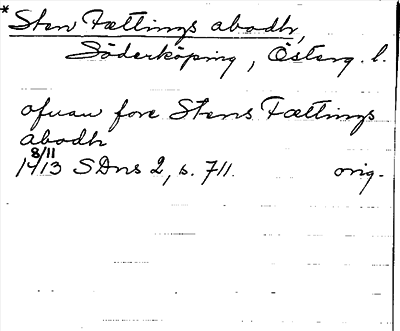 *Sten Fættings abodh,
Söderköping, Österg. l.
ofuan fore Stens Fættings
abodh
8/11
1413 SDns 2, s. 711. orig.